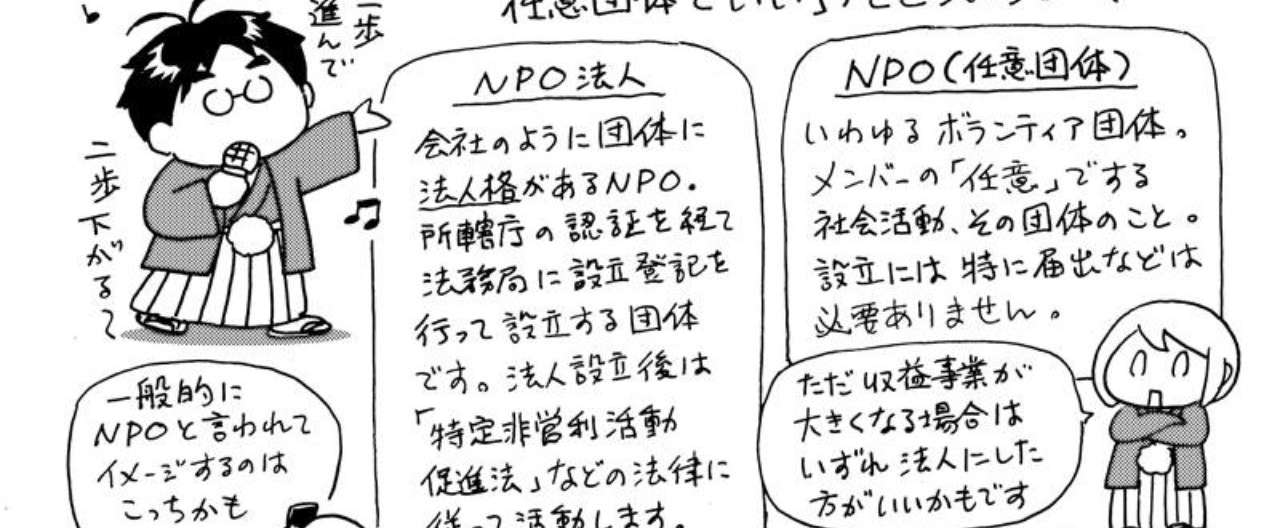 任意団体
一歩
進んで
二歩下がる〜
NPO法人
会社のように団体に
法人格があるNPO。
所轄庁の認証を経て
法務局に設立登記を
行って設立する団体
です。法人設立後は
「特定非営利活動
促進法」などの法律に
従って活動します。
一般的に
NPOと言われて
イメージするのは
こっちかも
NPO(任意団体)
いわゆるボランティア団体。
メンバーの「任意」でする
社会活動、その団体のこと。
設立には特に届出などは
必要ありません。
ただ収益事業が
大きくなる場合は
いずれ法人にした
方がいいかもです